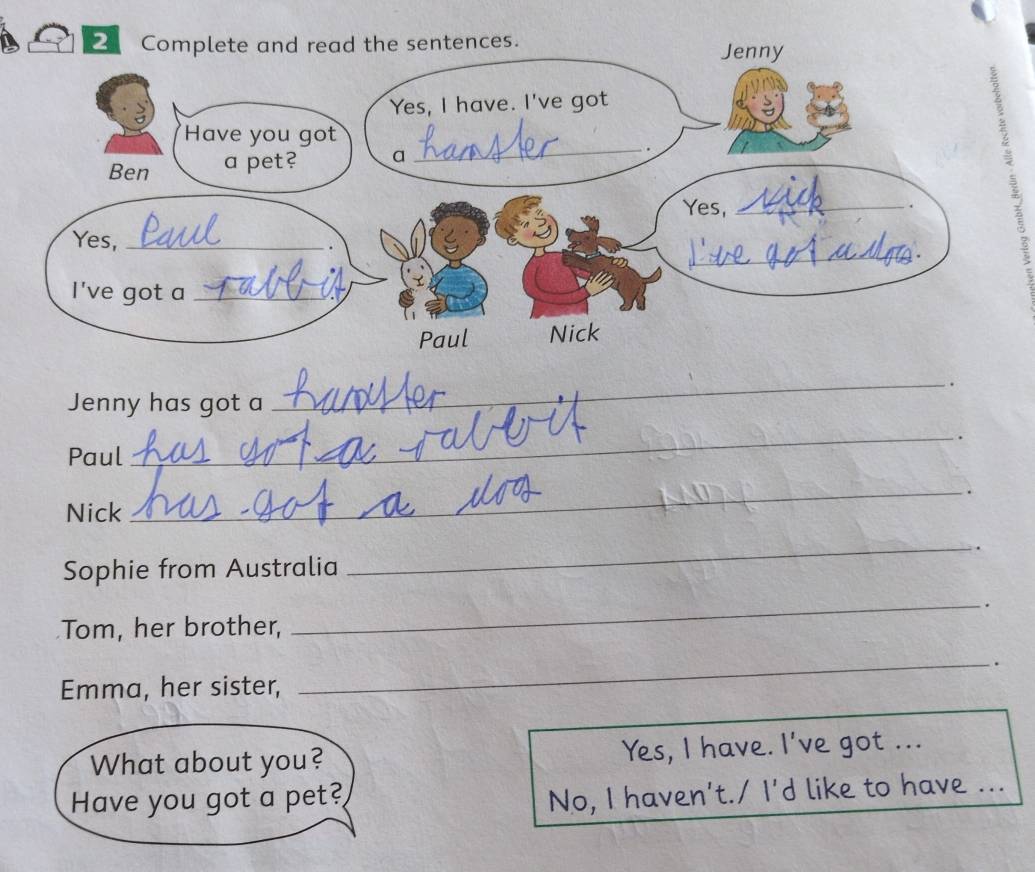 2 Complete and read the sentences.
Jenny
Yes, I have. I've got
a hamster.
Have you got
a pet?
Ben
Yes, Nick.
I've got a dog.
Yes, Paul.
I've got a rabbit.
Paul
Nick
Jenny has got a hamster.
Paul has got a rabbit.
Nick has got a dog.
Sophie from Australia ______.
Tom, her brother, ______.
Emma, her sister, ______.
What about you?
Have you got a pet?
Yes, I have. I've got ...
No, I haven't./ I'd like to have ...
Verlag GmbH, Berlin · Alle Rechte vorbehalten.